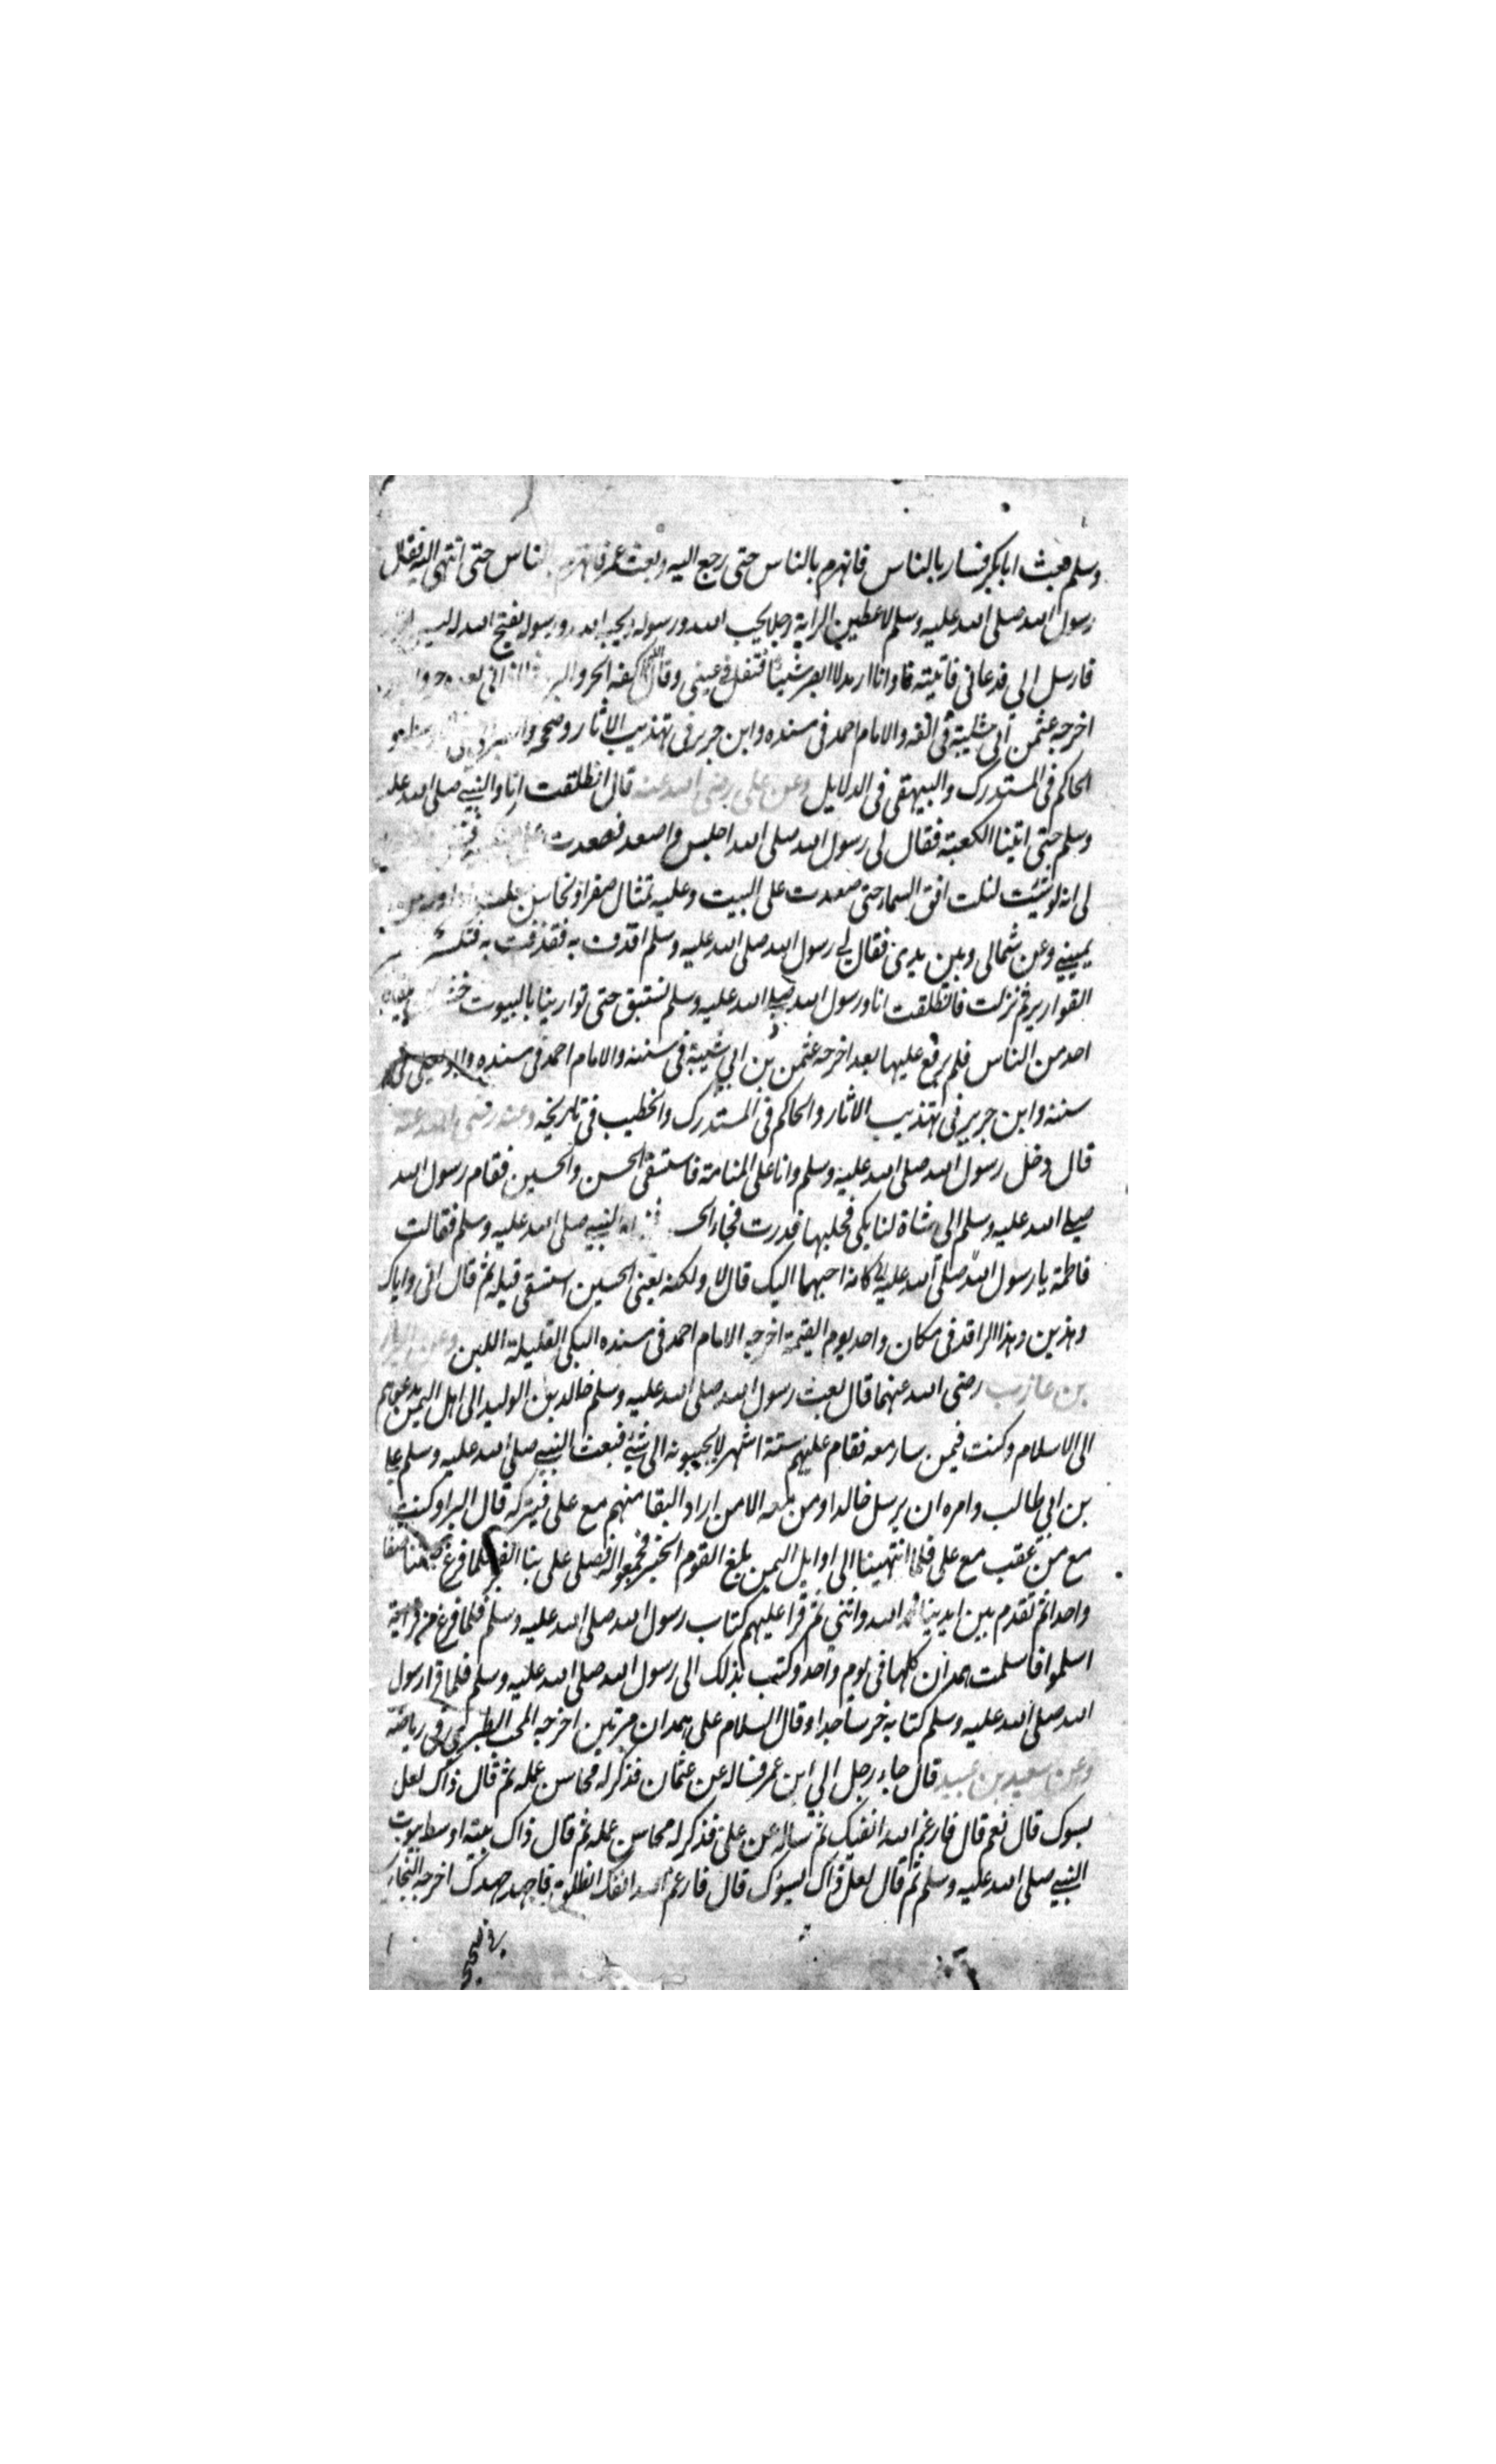 وسلم فبعث ابابكر فسار بالناس فانهزم بالناس حتى رجع اليه وبعث عمر فانهزم بالناس حتى انتهى اليه فقال
رسول الله صلى الله عليه وسلم لاعطين الراية رجلا يحب الله ورسوله ويحبه الله ورسوله يفتح الله له ليس
فارسل الي فدعاني فاتيته فاوانا ارمد لا ابصر شيئا فتفل في عيني وقال اللهم اكفه الحر والبرد فما اذاني بعده حر ولا
اخرجه عثمن ابي شيبة في والامام احمد في مسنده وابن جرير في تهذيب الاثار وصححه
الحاكم في المستدرك والبيهقي في الدلايل وعن علي رضي الله عنه قال انطلقت انا والنبي صلى الله عليه
وسلم حتى اتينا الكعبة فقال لي رسول الله صلى الله اجلس واصعد فصعدت
لي انه لو شئت لنلت افق السما حتى صعدت على البيت وعليه تمثال صفر او نحاس فجعلت
يميني وعن شمالي وبين يدي فقال لي رسول الله صلى الله عليه وسلم اقذف به فقذفت به فتكسر
القوارير ثم نزلت فانطلقت انا ورسول الله صلى الله عليه وسلم نستبق حتى توارينا بالبيوت
احد من الناس فلم يرفع عليها بعد اخرجه عثمن بن ابي شيبة في سننه والامام احمد في مسنده وابو يعلى في
سننه وابن جرير في تهذيب الاثار والحاكم في المستدرك والخطيب في تاريخه وعنه رضي الله عنه
قال دخل رسول الله صلى الله عليه وسلم وانا على المنامة فاستسقى الحسن والحسين فقام رسول الله
صلى الله عليه وسلم الى شاة لنا بكى فحلبها فدرت فجاء الحسن النبي صلى الله عليه وسلم فقالت
فاطمة يا رسول الله صلى الله عليك كانه احبهما اليك قال لا ولكنه يعني الحسين استسقى قبله ثم قال اني واياك
وهذين وهذا الراقد في مكان واحد يوم القيمة اخرجه الامام احمد في مسنده البكى القليلة اللبن وعن البرا
بن عازب رضي الله عنهما قال بعث رسول الله صلى الله عليه وسلم خالد بن الوليد الى اهل اليمن يدعوهم
الى الاسلام وكنت فيمن سار معه فقام عليهم ستة اشهر لا يجيبونه الى شيء فبعث النبي صلى الله عليه وسلم علي
بن ابي طالب وامره ان يرسل خالدا ومن معه الا من اراد البقا منهم مع علي فيتركه قال البرا وكنت
مع من عقب مع علي فلما انتهينا الى اوايل اليمن بلغ القوم الخبر فجمعوا له فصلى علي بنا الفجر فلما فرغ صفنا صفا
واحدا ثم تقدم بين ايدينا فحمد الله واثنى ثم قرا عليهم كتاب رسول الله صلى الله عليه وسلم فلما فرغ من قراءته
اسلموا فاسلمت همدان كلها في يوم واحد وكتب بذلك الى رسول الله صلى الله عليه وسلم فلما قرا رسول
الله صلى الله عليه وسلم كتابه خر ساجدا وقال السلام على همدان مرتين اخرجه المحب الطبري في رياضه
وعن سعيد بن عبيد قال جاء رجل الى ابن عمر فساله عن عثمان فذكر له محاسن عمله ثم قال ذاك لعل
يسوك قال نعم قال فارغم الله انفك ثم ساله عن علي فذكر له محاسن عمله ثم قال ذاك بيته اوسط بيوت
النبي صلى الله عليه وسلم ثم قال لعل ذاك يسوك قال فارغم الله انفك انطلق فاجهد جهدك اخرجه البخاري
في صحيحه